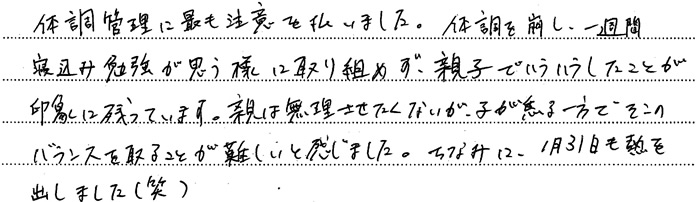 体調管理に最も注意を払いました。体調を崩し、一週間
寝込み勉強が思う様に取り組めず、親子でいらいらしたことが
印象に残っています。親は無理させたくないが、子が焦る一方でそこの
バランスを取ることが難しいと感じました。ちなみに、1月31日も熱を
出しました(笑)